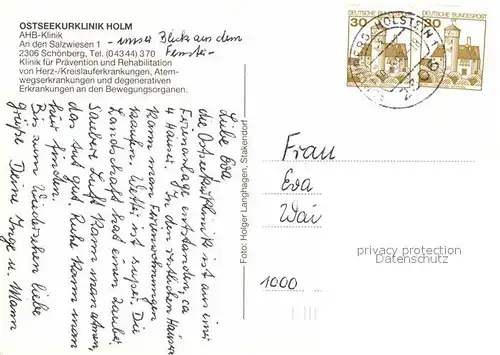 OSTSEEKURKLINIK HOLM
AHB-Klinik
An den Salzwiesen 1
2306 Schönberg, Tel. (04344) 370
Klinik für Prävention und Rehabilitation
von Herz-/Kreislauferkrankungen, Atem-
wegserkrankungen und degenerativen
Erkrankungen an den Bewegungsorganen.
- unser Blick aus dem
Fenster -
Liebe Eva,
die Ostseekurklinik ist aus einer
Ferienanlage entstanden, ca
4 Häuser. In den restlichen Häuser
kann man Ferienwohnungen
kaufen. Wetter ist super. Die
Landschaft hat einen Zauber.
Saubere Luft kann man atmen,
das tut gut. Ruhe kann man
hier finden.
Bis zum Wiedersehen liebe
Grüße Deine Inge u. Mann
Foto: Holger Langhagen, Stakendorf
DEUTSCHE BUNDESPOST
30
DEUTSCHE BUNDESPOST
30
HOLSTEIN
Frau
Eva
Wai
1000
privacy protection
Datenschutz